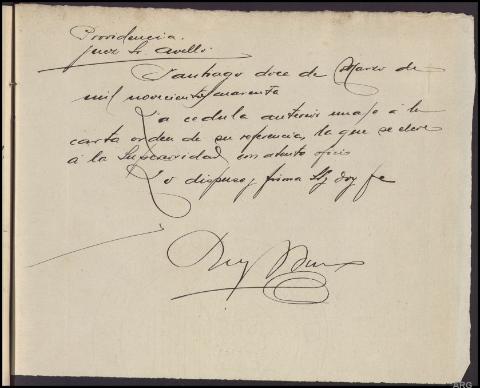 Providencia.
Juez Sr. Avello.
Santiago doce de Marzo de
mil novecientos cuarenta
La cedula anterior unase á la
carta orden de su referencia, la que se eleve
á la Superioridad con atento oficio
Lo dispuso y firma SSª doy fe
ARG